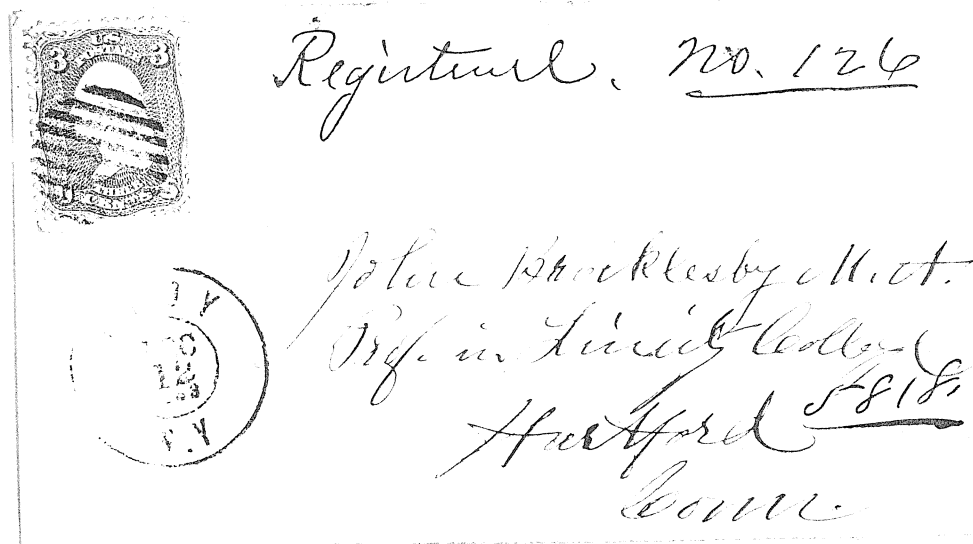 3 U.S. 3
Registered. No. 126
John Brocklesby M.A.
Prof. in Trinity College
5818
Hartford
Conn.